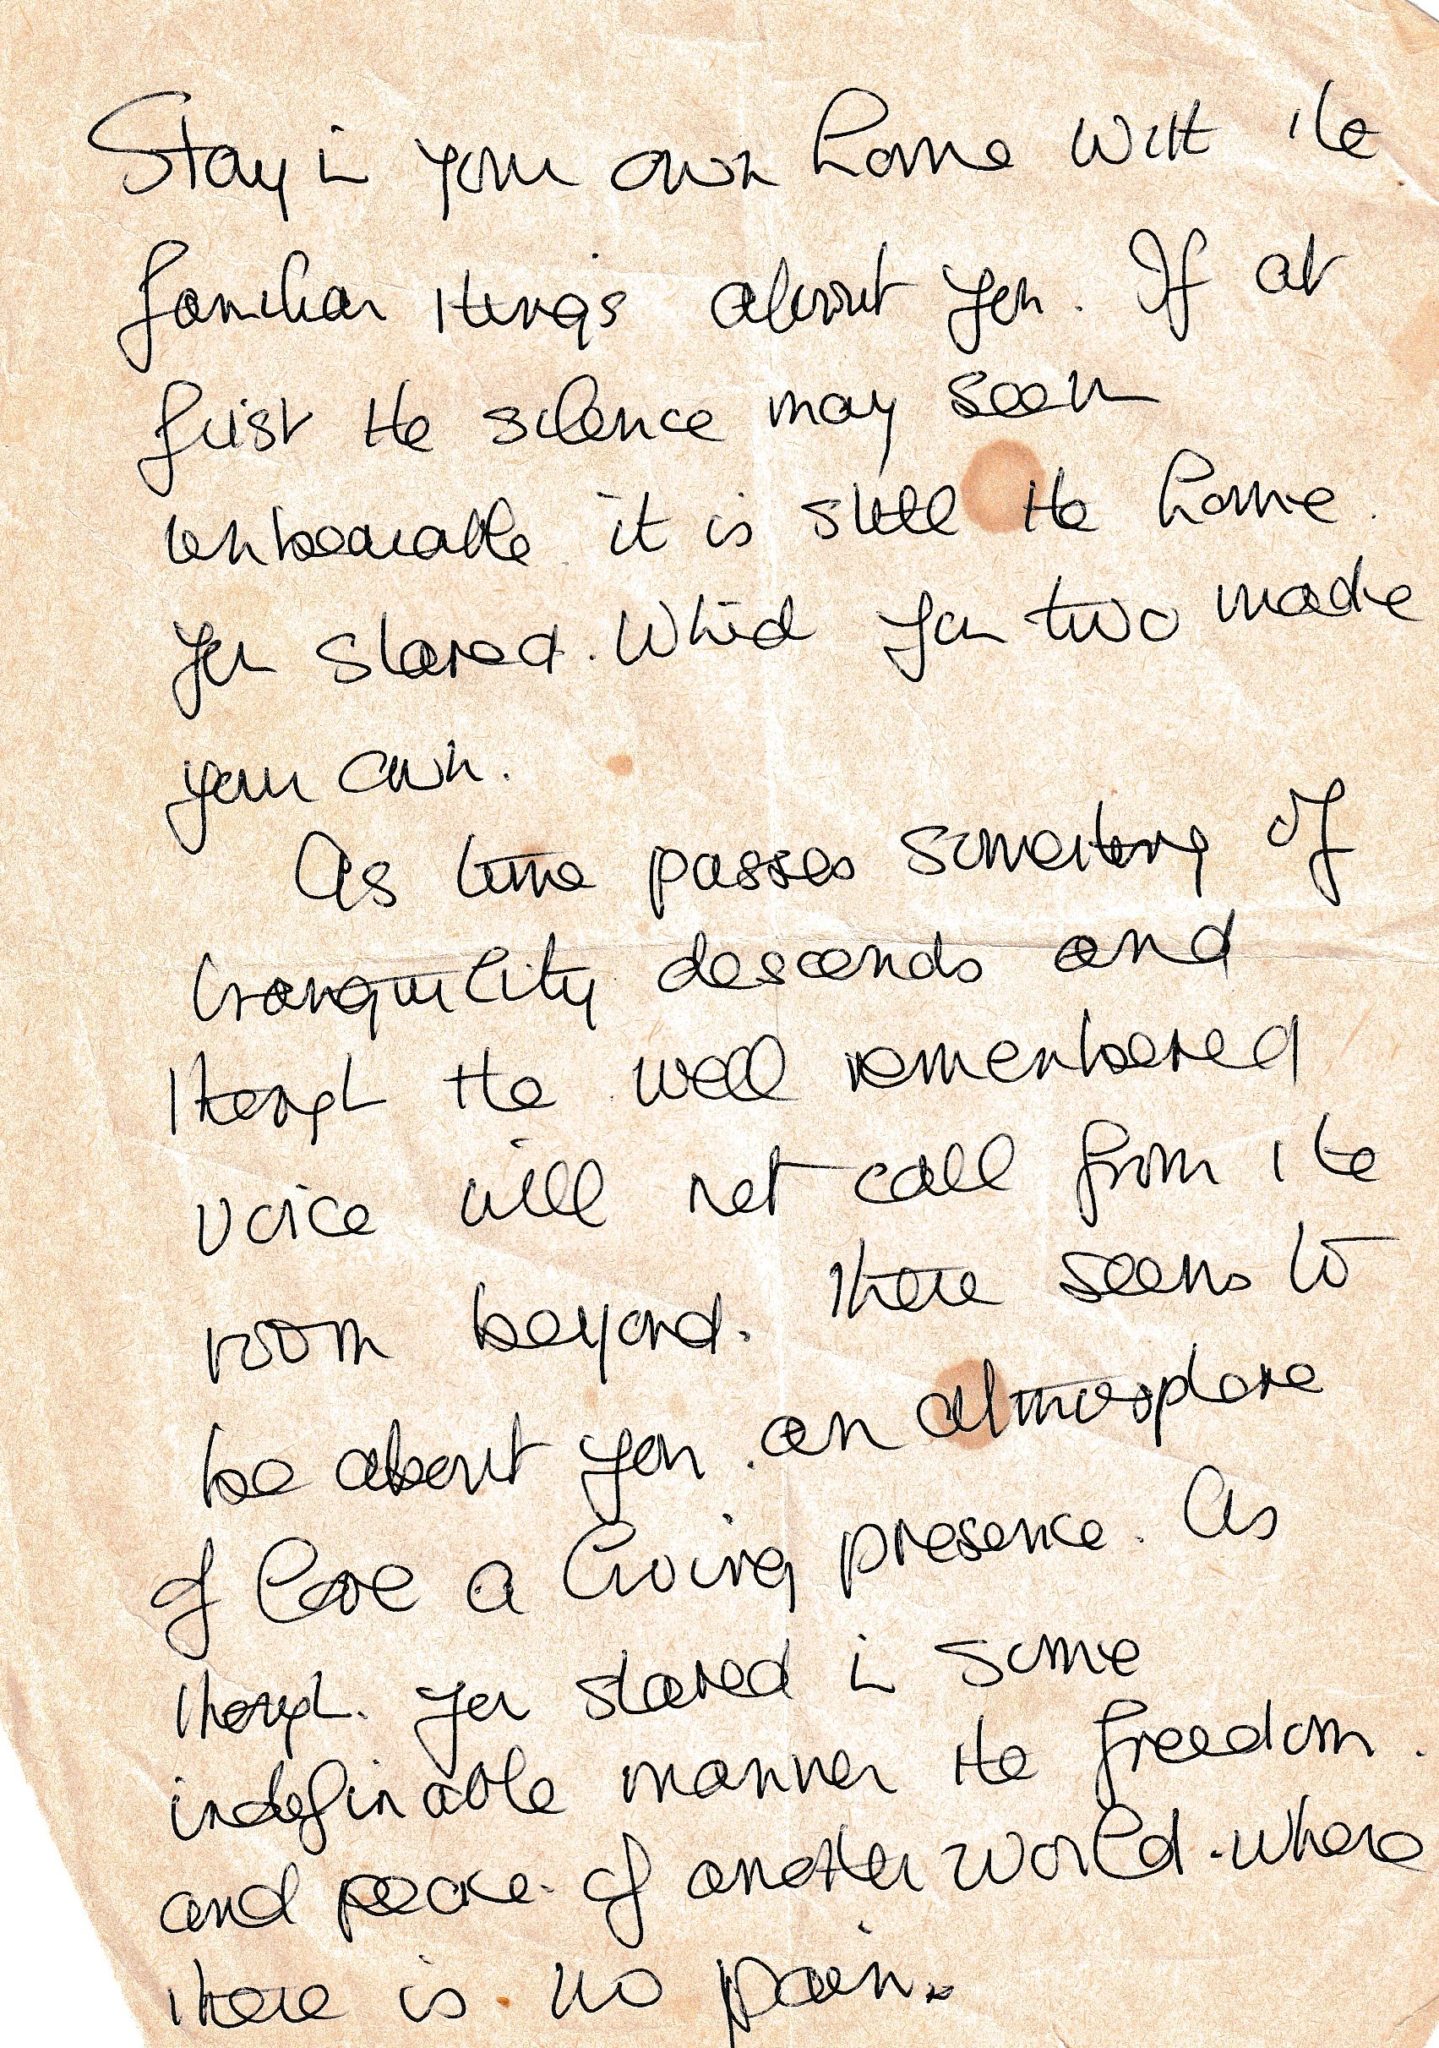 Stay in your own home with the
familiar things about you. If at
first the silence may seem
unbearable it is still the home.
you shared. Which you two made
your own.
As time passes something of
tranquility descends and
though the well remembered
voice will not call from the
room beyond. There seems to
be about you. an atmosphere
of love a living presence. As
though. you shared in some
indefinable manner the freedom.
and peace. of another world. where
there is. no pain.